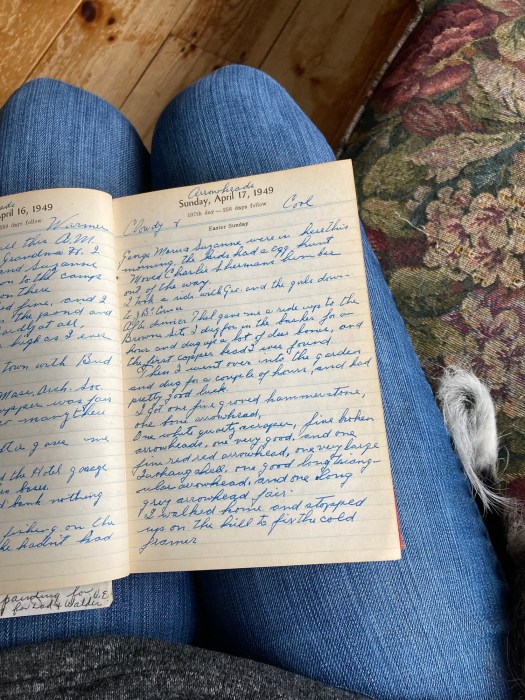 April 16, 1949
Warmer
this A.M.
Grandma H. I
and Suzanne
to the camp
on there
fine, and I
The pond and
hardly at all
as high as I ever
town with Bud
Mass. Arch. Soc.
supper was fan
so many there
gave me
the Hotel garage
bank nothing
fishing on the
he hadn't had
painting for
for Dad & Walder
Arrowheads
Sunday, April 17, 1949
107th day — 258 days follow
Cloudy & Cool
Easter Sunday
George Maria Suzanne were in here this
morning. the kids had a egg hunt
Moved Charlie Shermans lumber
out of the way
I took a ride with Geo. and the girls down
to
After dinner Thel gave me a ride up to the
Browne Site I dug for in the bunker for an
hour and dug up a lot of deer bones, and
the first copper bead I ever found
Then I went over into the garden
and dug for a couple of hours, and had
pretty good luck.
I got one fine groved hammerstone,
one bone arrowhead,
One white quartz scraper, fine broken
arrowheads, one very good, and one
fine red red arrowhead, one very large
shell, one good long triang-
ular arrowhead, and one long
grey arrowhead fair.
I walked home and stopped
up on the hill to fix the cold
framer